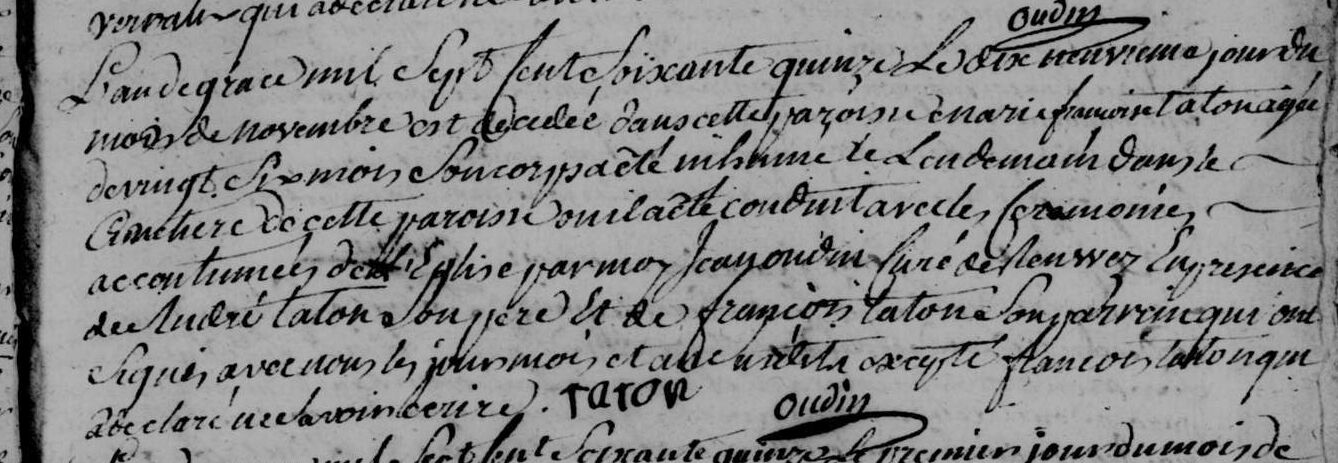 verball qui a declaré
oudin
L'an de grace mil Sept Cent Soixante quinze Le dix neuvieme jour du
mois de novembre est decedée dans cette paroisse marie francoise taton agée
de vingt Six mois Son corps a été inhumé le Lendemain dans le
Cimetiere de cette paroisse ou il a été conduit avec les Ceremonies
accoutumées de l'Eglise par moy Jean oudin Curé de Renwez En presence
de André taton Son pere Et de françois taton Son parrein qui ont
Signés avec nous les jours mois et an susdits excepté francois taton qui
a declaré ne Savoir ecrire. taton oudin
mil Sept Cent Soixante quinze Le premier jour du mois de